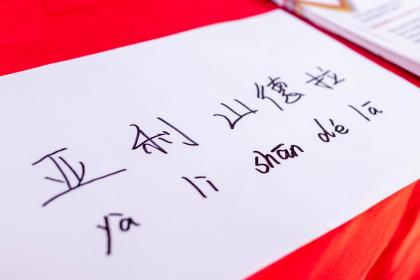 亚利山德拉
yà lì shān dé lā